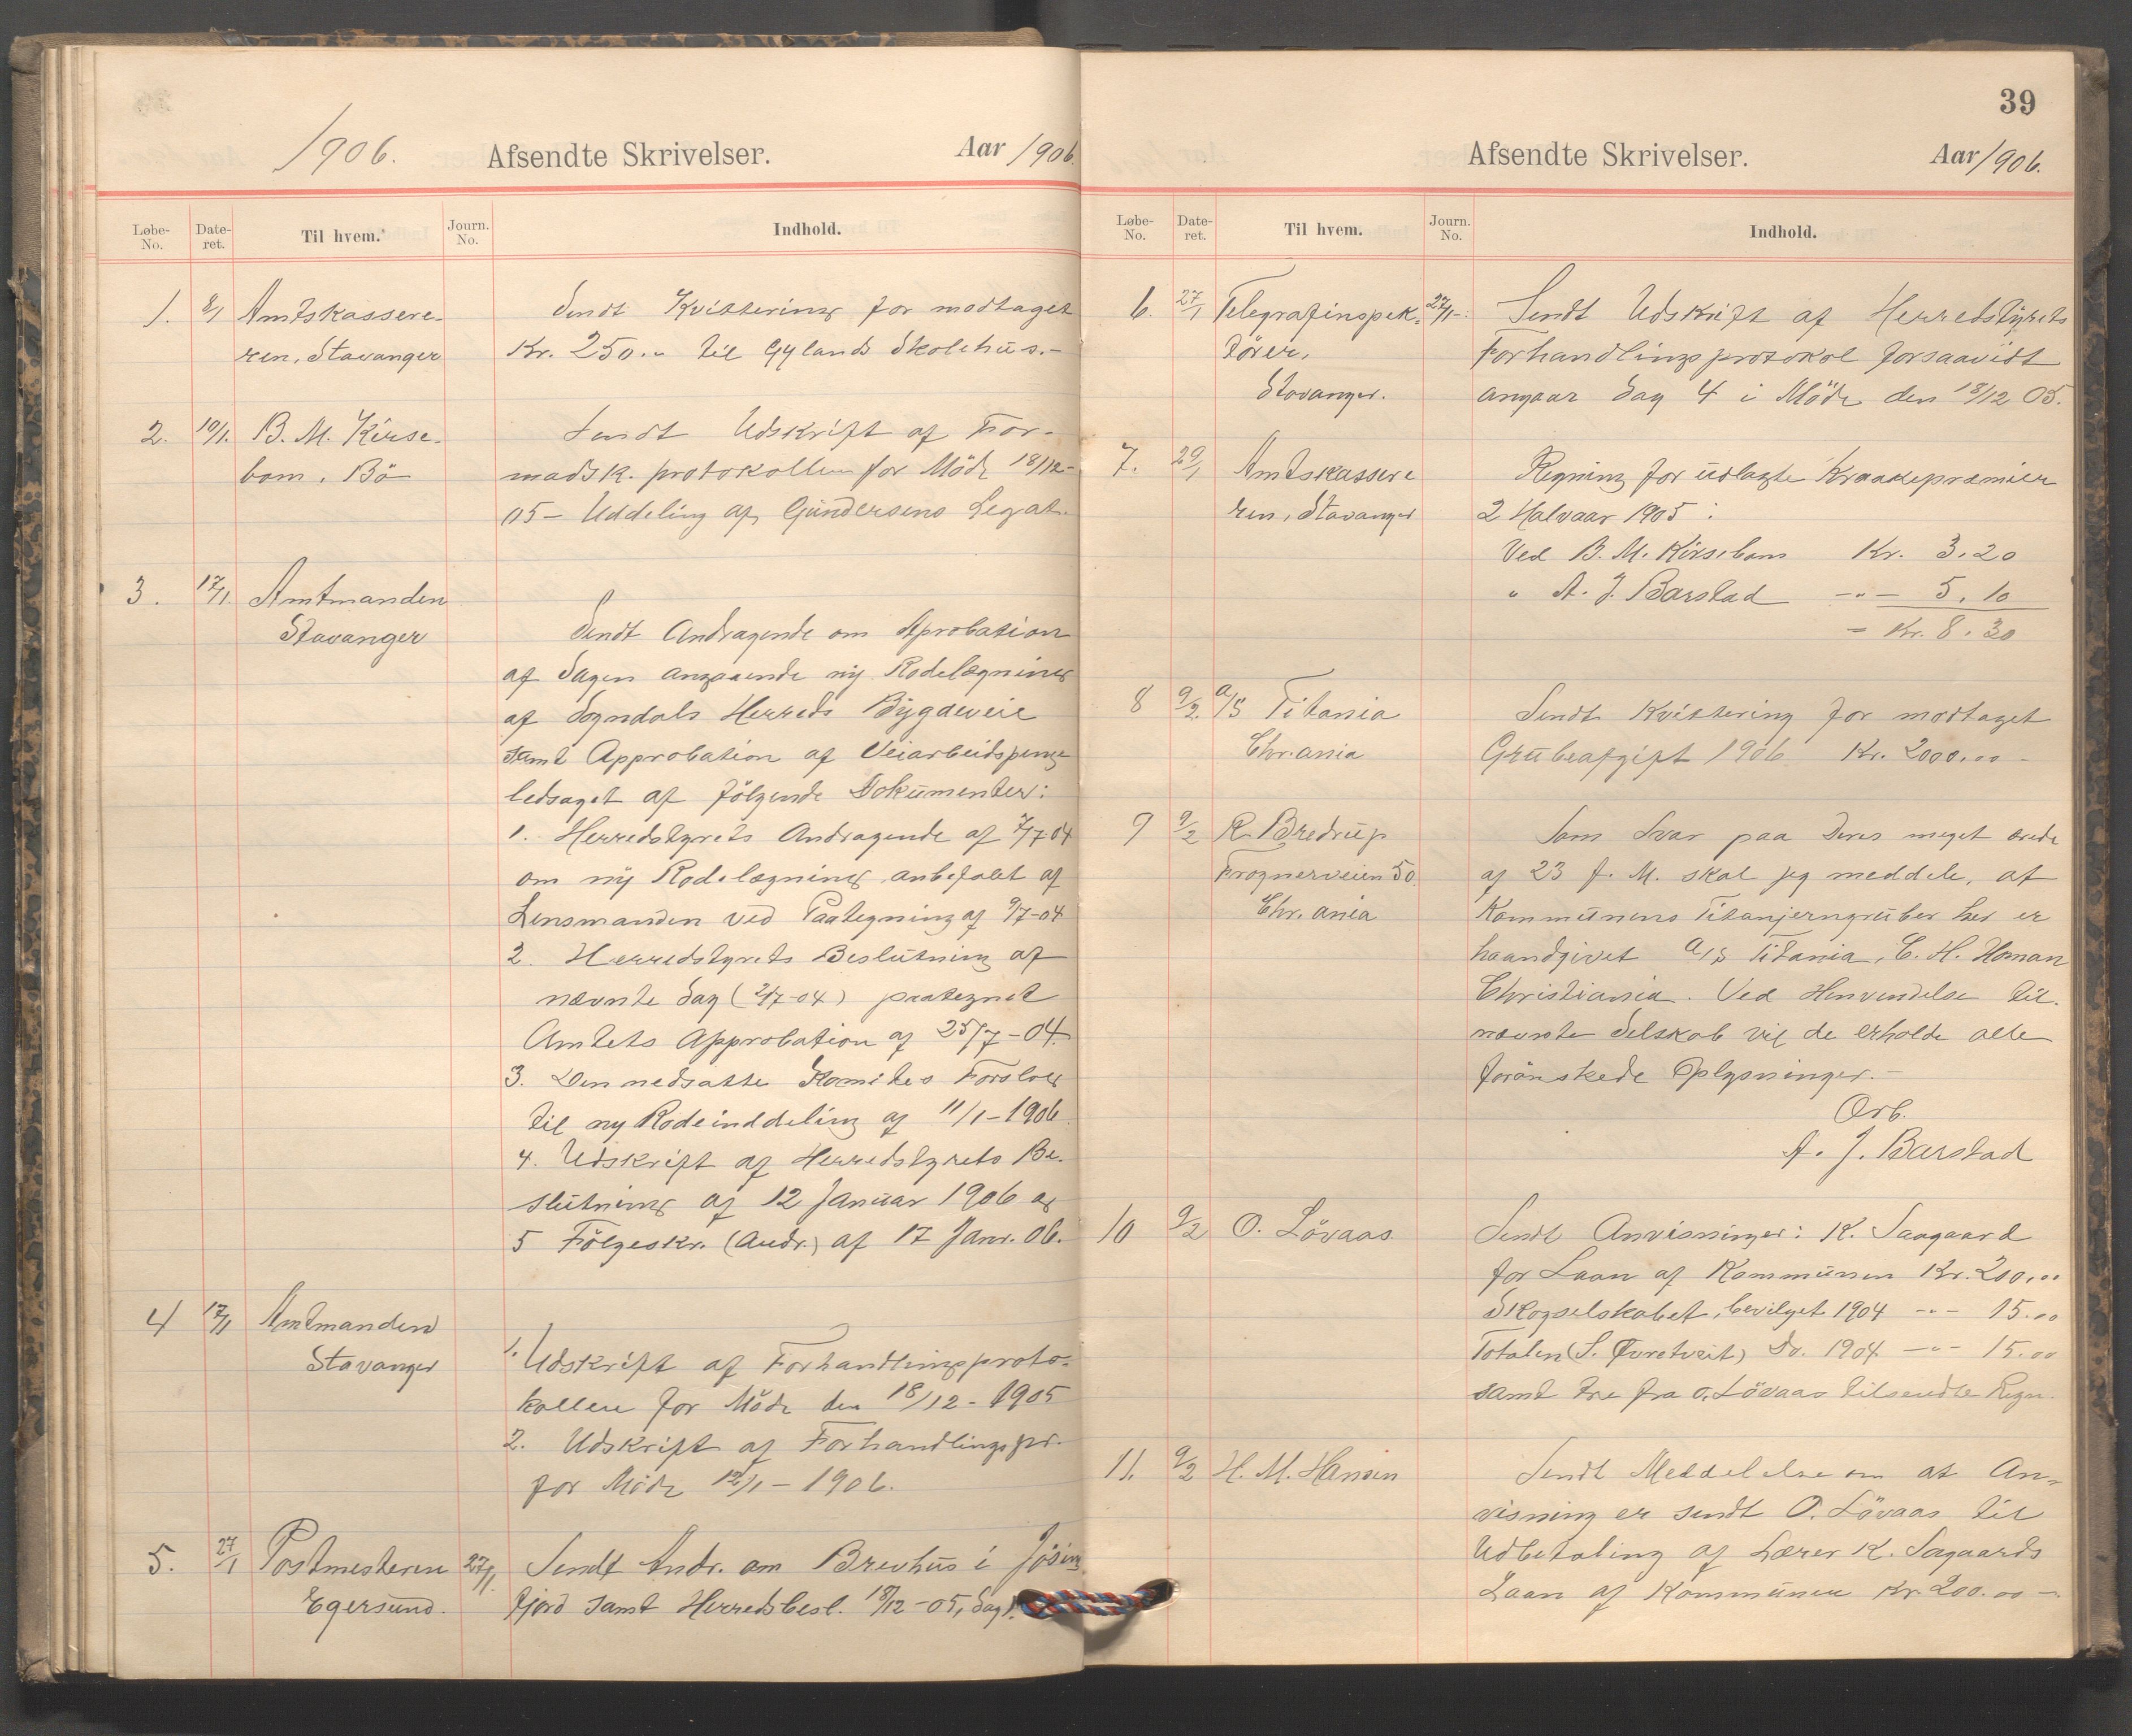 1906. Afsendte Skrivelser. Aar 1906.
Løbe-No. Date-ret. Til hvem. Journ. No. Indhold.
1. 8/1 Amtskassere- Sendt Kvittering for modtaget
ren, Stavanger Kr. 250.- til Gylands Skolehus.-
2. 10/1. B. M. Kirse- Sendt Udskrift af For-
bom, Bö madsk. protokollen for Möde 18/12-
05- Uddeling af Gundersens Legat.
3. 17/1. Amtmanden
Stavanger Sendt Andragende om Aprobation
af Sagen angaaende ny Rodelægning
af Sogndals Herreds Bygdeveie
samt Approbation af Veiarbeidspenge
ledsaget af fölgende Dokumenter:
1. Herredstyrets Andragende af 2/7 04
om ny Rodelægning anbefalet af
Lensmanden ved Paategning af 9/7-04
2. Herredstyrets Beslutning af
nævnte Dag (2/7-04) paategnet
Amtets Approbation af 25/7-04.
3. Den nedsatte Komites Forslag
til ny Rodeinddeling af 11/1-1906.
4. Udskrift af Herredstyrets Be-
slutning af 12 Januar 1906 og
5 Fölgeskr. (Andr.) af 17 Janr. 06.
4 17/1 Amtmanden
Stavanger 1. Udskrift af Forhandlingsproto-
kollen for Möde den 18/12-1905
2. Udskrift af Forhandlingspr.
for Möde 12/1-1906.
5. 27/1 Postmesteren 27/1. Sendt Andr. om Brevhus i Jösing
Egersund. fjord samt Herredsbesl. 18/12-05, Sag 1.
39
Afsendte Skrivelser. Aar 1906.
Løbe-No. Date-ret. Til hvem. Journ. No. Indhold.
6. 27/1 Telegrafinspek- 27/1-. Sendt Udskrift af Herredstyrets
törer, Forhandlingsprotokol forsaavidt
Stavanger. angaar Sag 4 i Möde den 18/12 05.
7. 29/1 Amtskassere Regning for udlagte Kraakepræmier
ren, Stavanger 2 Halvaar 1905:
Ved B. M. Kirsebom Kr. 3.20
" A. J. Barstad -"- 5.10
= Kr. 8.30
8 9/2. A/S Titania Sendt Kvittering for modtaget
Chr.ania Grubeafgift 1906 Kr. 2000.00-
9 9/2 R. Bredrup Som Svar paa Deres meget ærede
Frognerveien 50. af 23 f. M. skal jeg meddele, at
Chr.ania Kommunens Titanjerngruber her er
haandgivet A/S Titania, C. H. Homan
Christiania. Ved Henvendelse til
nævnte Selskab vil de erholde alle
forönskede Oplysninger.-
Ærb.
A. J. Barstad
10 9/2 O. Lövaas Sendt Anvisninger: K. Saagaard
for Laan af Kommunen Kr. 200.00
Skogselskabet, bevilget 1904 -"- 15.00
Totalen (S. Øvretveit) Do. 1904 -"- 15.00
samt tre fra O. Lövaas tilsendte Regn.
11. 9/2 H. M. Hansen Sendt Meddelelse om at An-
visning er sendt O. Lövaas til
Udbetaling af Lærer K. Sagaards
Laan af Kommunen Kr. 200.00-